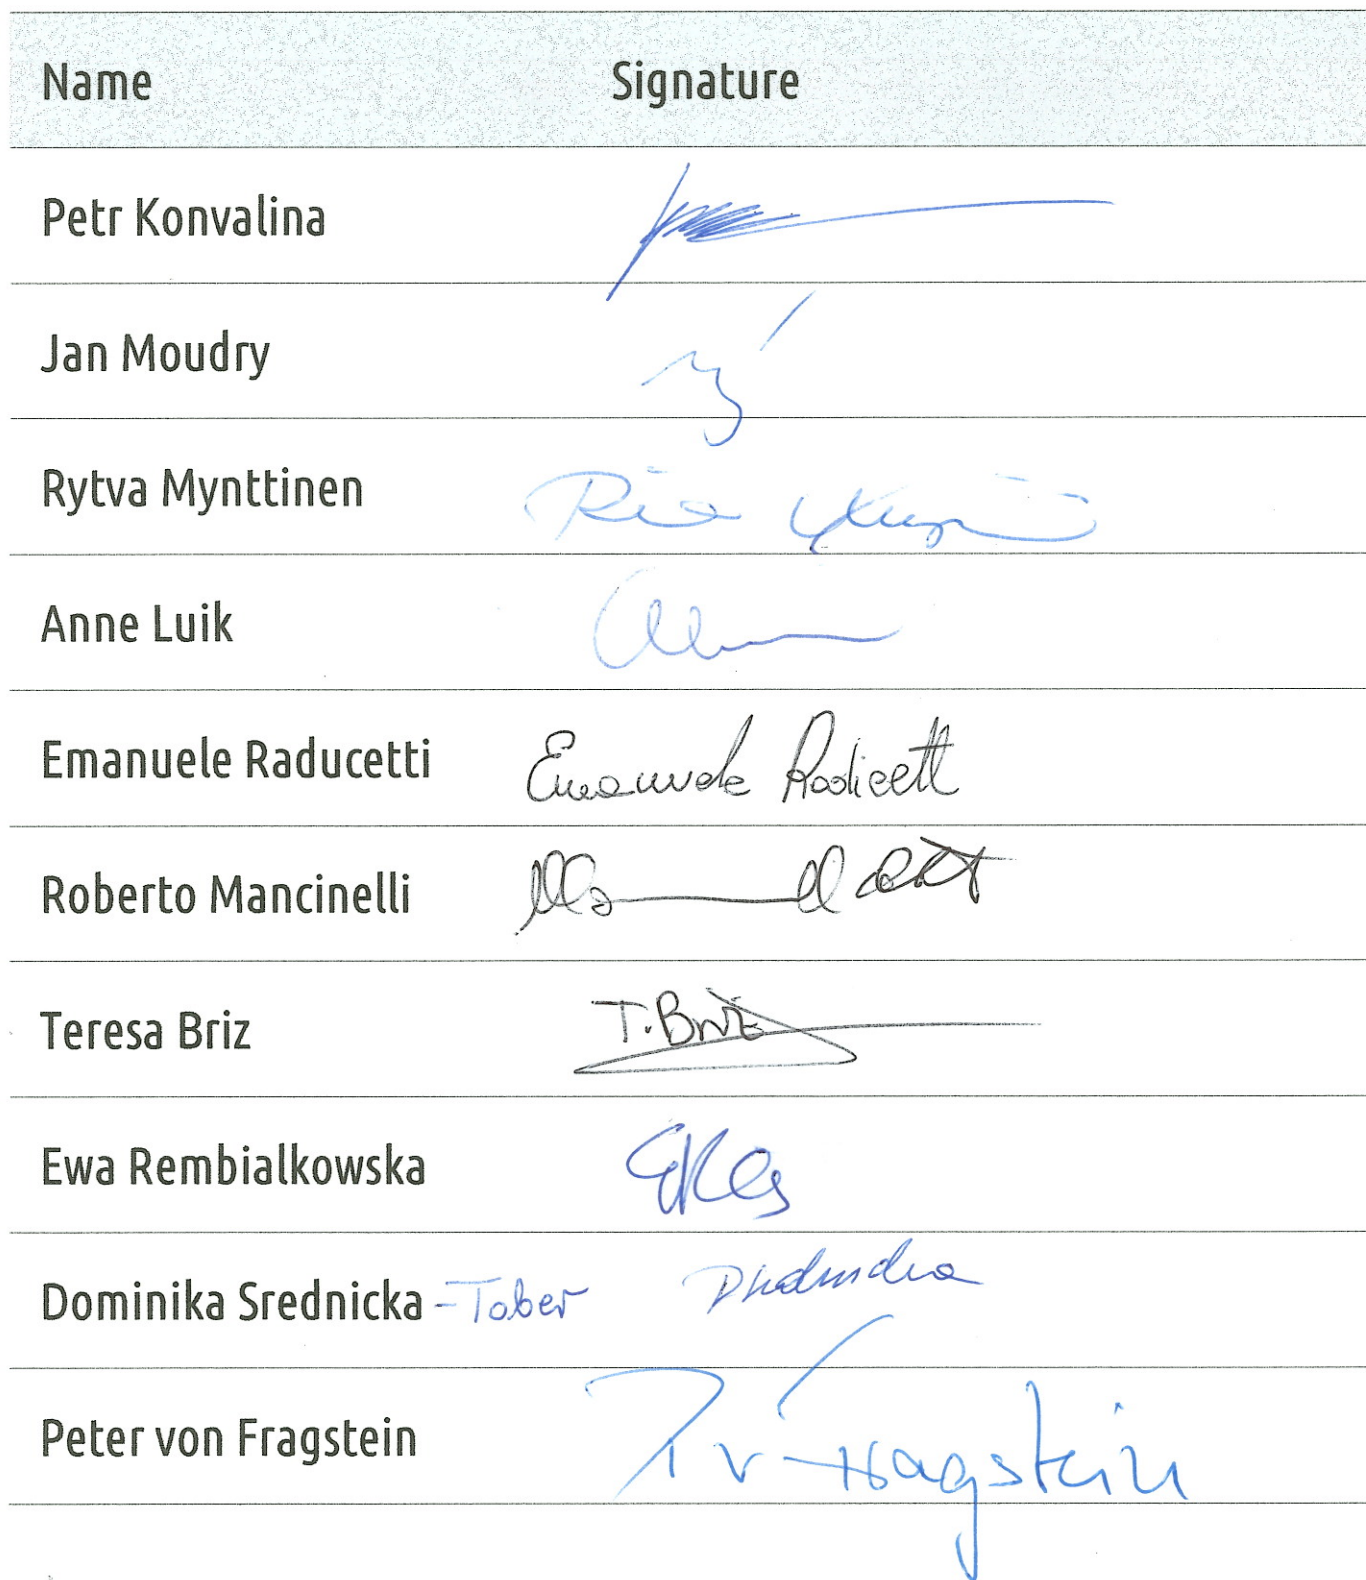 Name Signature
Petr Konvalina
Jan Moudry
Rytva Mynttinen
Anne Luik
Emanuele Raducetti Emanuele Radicetti
Roberto Mancinelli
Teresa Briz T. Briz
Ewa Rembialkowska
Dominika Srednicka -Taber
Peter von Fragstein P v Fragstein